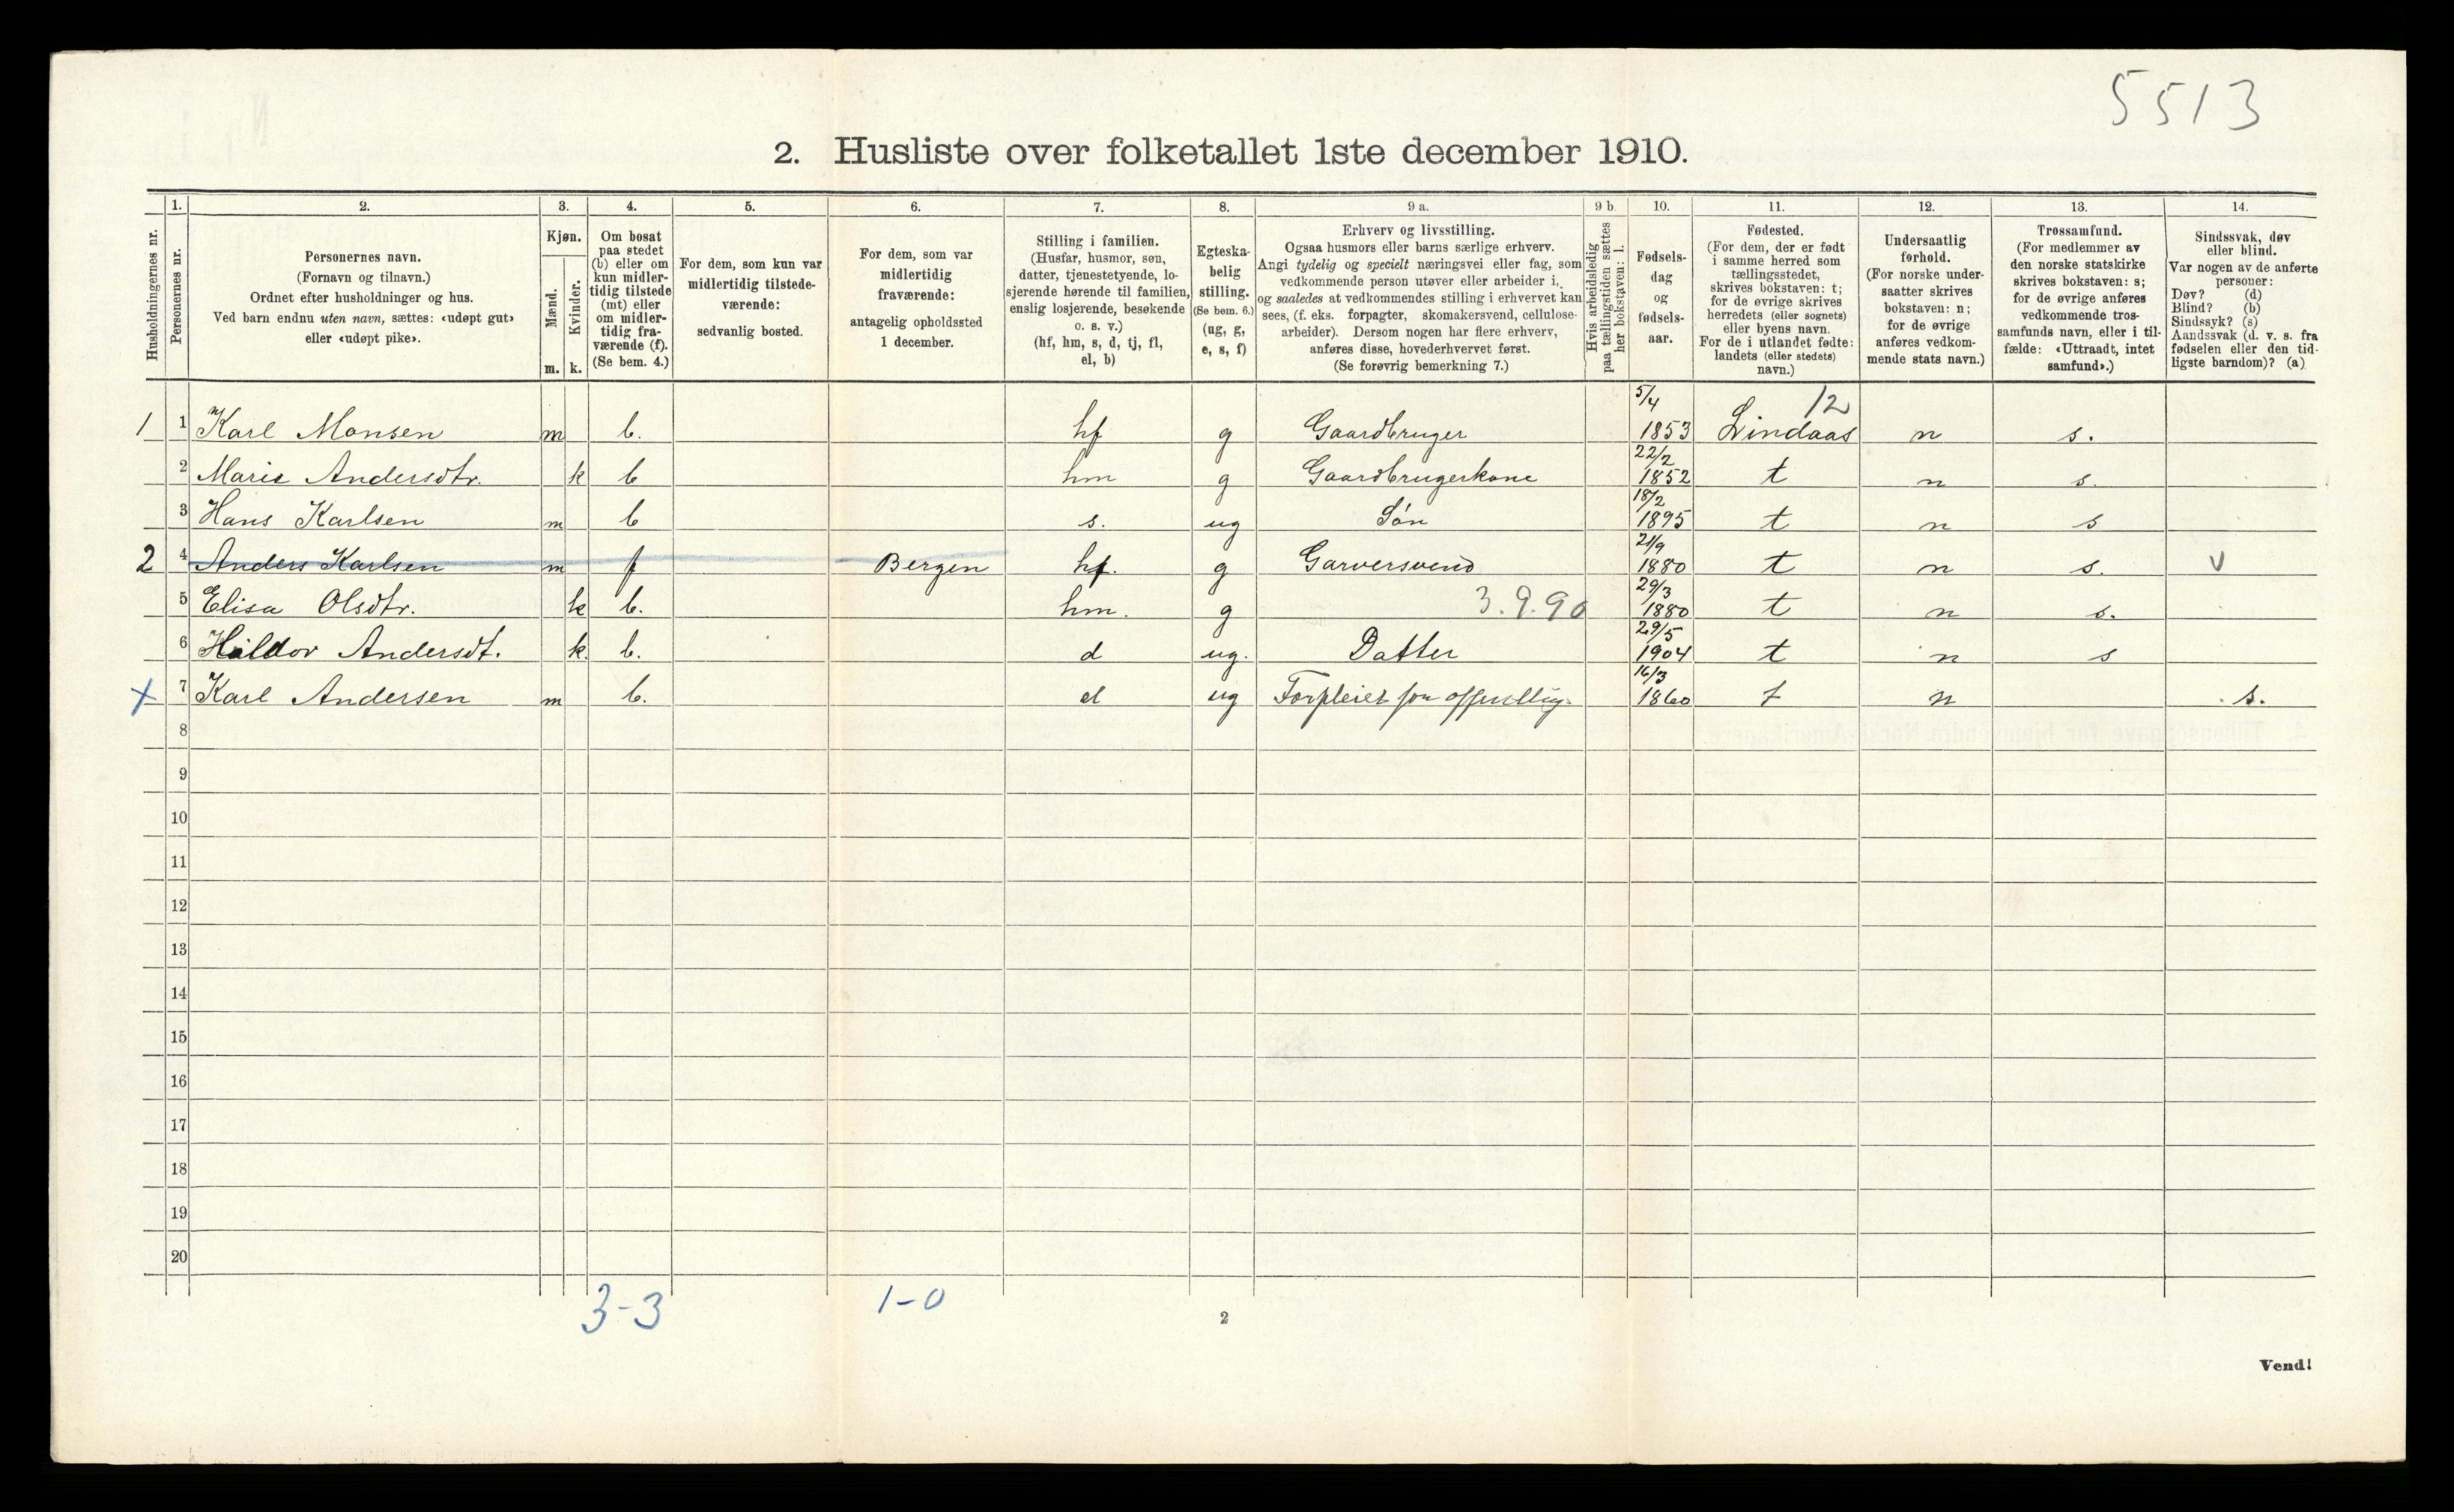 5513
2. Husliste over folketallet 1ste december 1910.
Husholdningernes nr.
1.
Personernes nr.
2.
Personernes navn.
(Fornavn og tilnavn.)
Ordnet efter husholdninger og hus.
Ved barn endnu uten navn, sættes: «udøpt gut»
eller «udøpt pike».
3.
Kjøn.
Mænd.
Kvinder.
m. k.
4.
Om bosat
paa stedet
(b) eller om
kun midler-
tidig tilstede
(mt) eller
om midler-
tidig fra-
værende (f).
(Se bem. 4.)
5.
For dem, som kun var
midlertidig tilstede-
værende:
sedvanlig bosted.
6.
For dem, som var
midlertidig
fraværende:
antagelig opholdssted
1 december.
7.
Stilling i familien.
(Husfar, husmor, søn,
datter, tjenestetyende, lo-
sjerende hørende til familien,
enslig losjerende, besøkende
o. s. v.)
(hf, hm, s, d, tj, fl,
el, b)
8.
Egteska-
belig
stilling.
(Se bem. 6.)
(ug, g,
e, s, f)
9 a.
Erhverv og livsstilling.
Ogsaa husmors eller barns særlige erhverv.
Angi tydelig og specielt næringsvei eller fag, som
vedkommende person utøver eller arbeider i,
og saaledes at vedkommendes stilling i erhvervet kan
sees, (f. eks. forpagter, skomakersvend, cellulose-
arbeider). Dersom nogen har flere erhverv,
anføres disse, hovederhvervet først.
(Se forøvrig bemerkning 7.)
9 b.
Hvis arbeidsledig
paa tællingstiden sættes
her bokstaven: l.
10.
Fødsels-
dag
og
fødsels-
aar.
11.
Fødested.
(For dem, der er født
i samme herred som
tællingsstedet,
skrives bokstaven: t;
for de øvrige skrives
herredets (eller sognets)
eller byens navn.
For de i utlandet fødte:
landets (eller stedets)
navn.)
12.
Undersaatlig
forhold.
(For norske under-
saatter skrives
bokstaven: n;
for de øvrige
anføres vedkom-
mende stats navn.)
13.
Trossamfund.
(For medlemmer av
den norske statskirke
skrives bokstaven: s;
for de øvrige anføres
vedkommende tros-
samfunds navn, eller i til-
fælde: «Uttraadt, intet
samfund».)
14.
Sindssvak, døv
eller blind.
Var nogen av de anførte
personer:
Døv? (d)
Blind? (b)
Sindssyk? (s)
Aandssvak (d. v. s. fra
fødselen eller den tid-
ligste barndom)? (a)
1 1 Karl Monsen m b. hf g Gaardbruger 5/4 1853 12 Lindaas n s.
2 Marie Andersdtr. k b hm g Gaardbrugerkone 22/2 1852 t n s.
3 Hans Karlsen m b s. ug Søn 18/2 1895 t n s
2 4 Anders Karlsen m f Bergen hf. g Garversvend 21/9 1880 t n s. v
5 Elisa Olsdtr. k b. hm. g 3.9.90 29/3 1880 t n s.
6 Halldor Andersdt. k. b. d ug. Datter 29/5 1904 t n s
x 7 Karl Andersen m b. el ug Forpleies fra offentlig. 16/3 1860 t n s.
8
9
10
11
12
13
14
15
16
17
18
19
20
3-3 1-0
2
Vend!